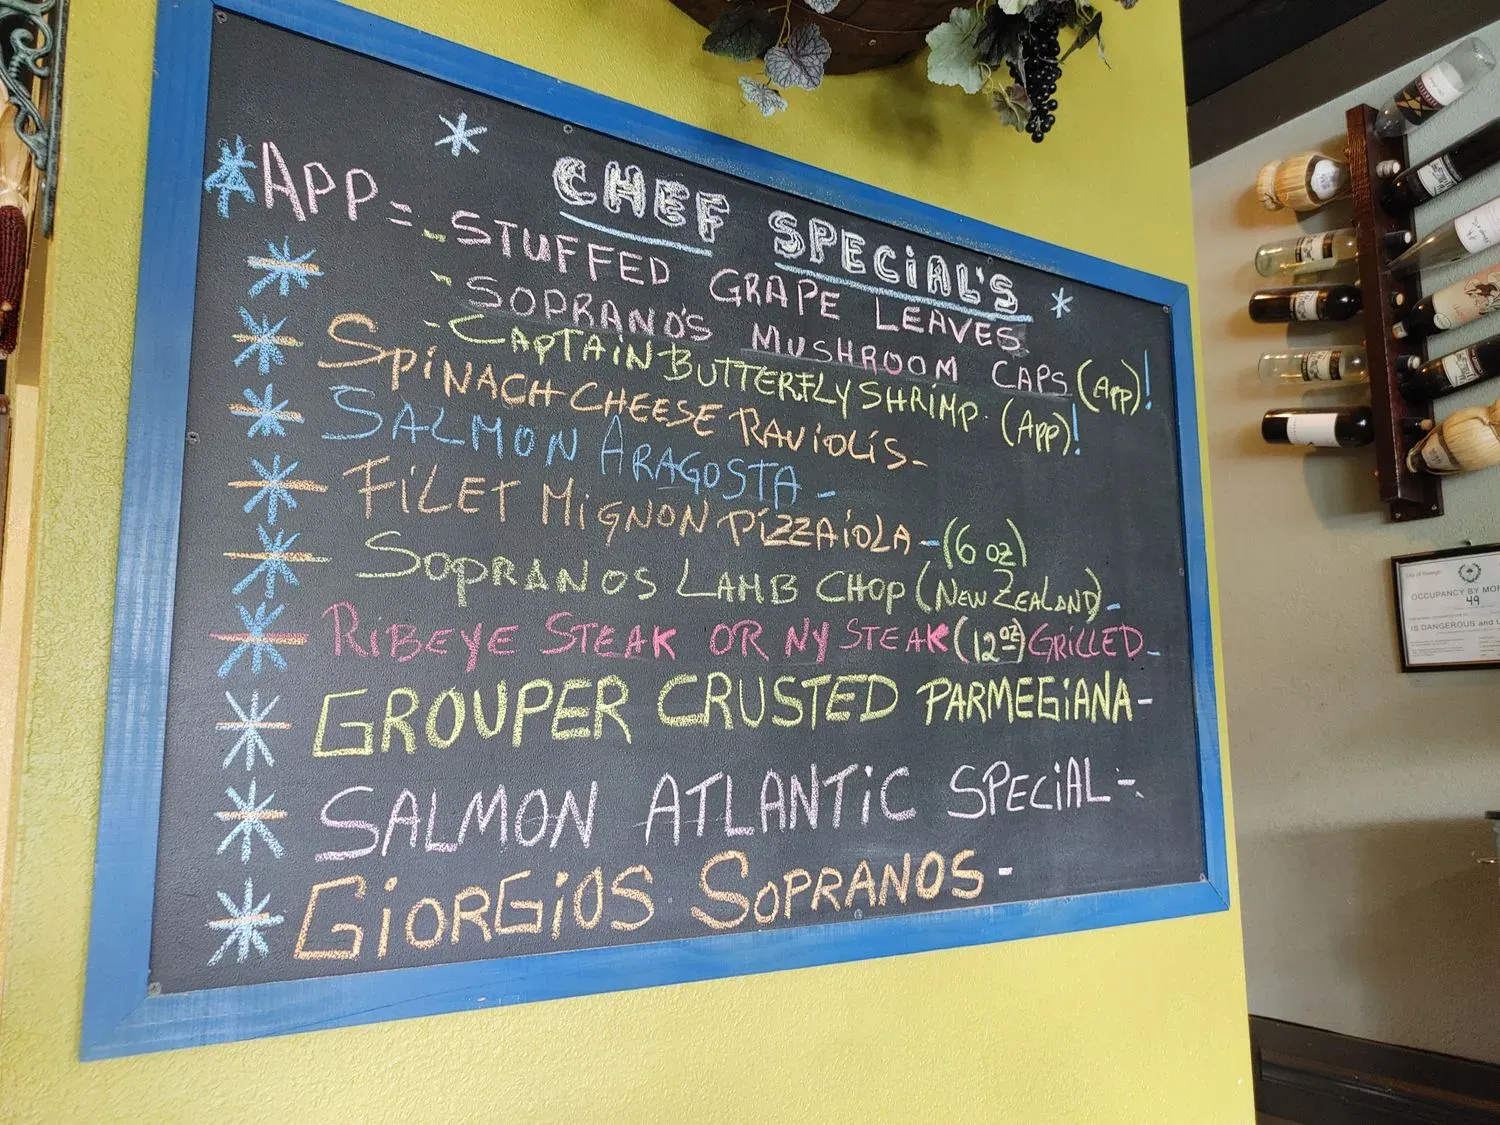 CHEF SPECIAL'S
APP = - STUFFED GRAPE LEAVES
- SOPRANO'S MUSHROOM CAPS (APP)!
- CAPTAIN BUTTERFLY SHRIMP. (APP)!
SPINACH CHEESE RAVIOLIS -
SALMON ARAGOSTA -
FILET MIGNON PIZZAIOLA - (6 oz)
SOPRANOS LAMB CHOP (NEW ZEALAND) -
RIBEYE STEAK OR NY STEAK (12 oz) GRILLED -
GROUPER CRUSTED PARMEGIANA -
SALMON ATLANTIC SPECIAL -
GIORGIOS SOPRANOS -
OCCUPANCY BY MOR
49
IS DANGEROUS and